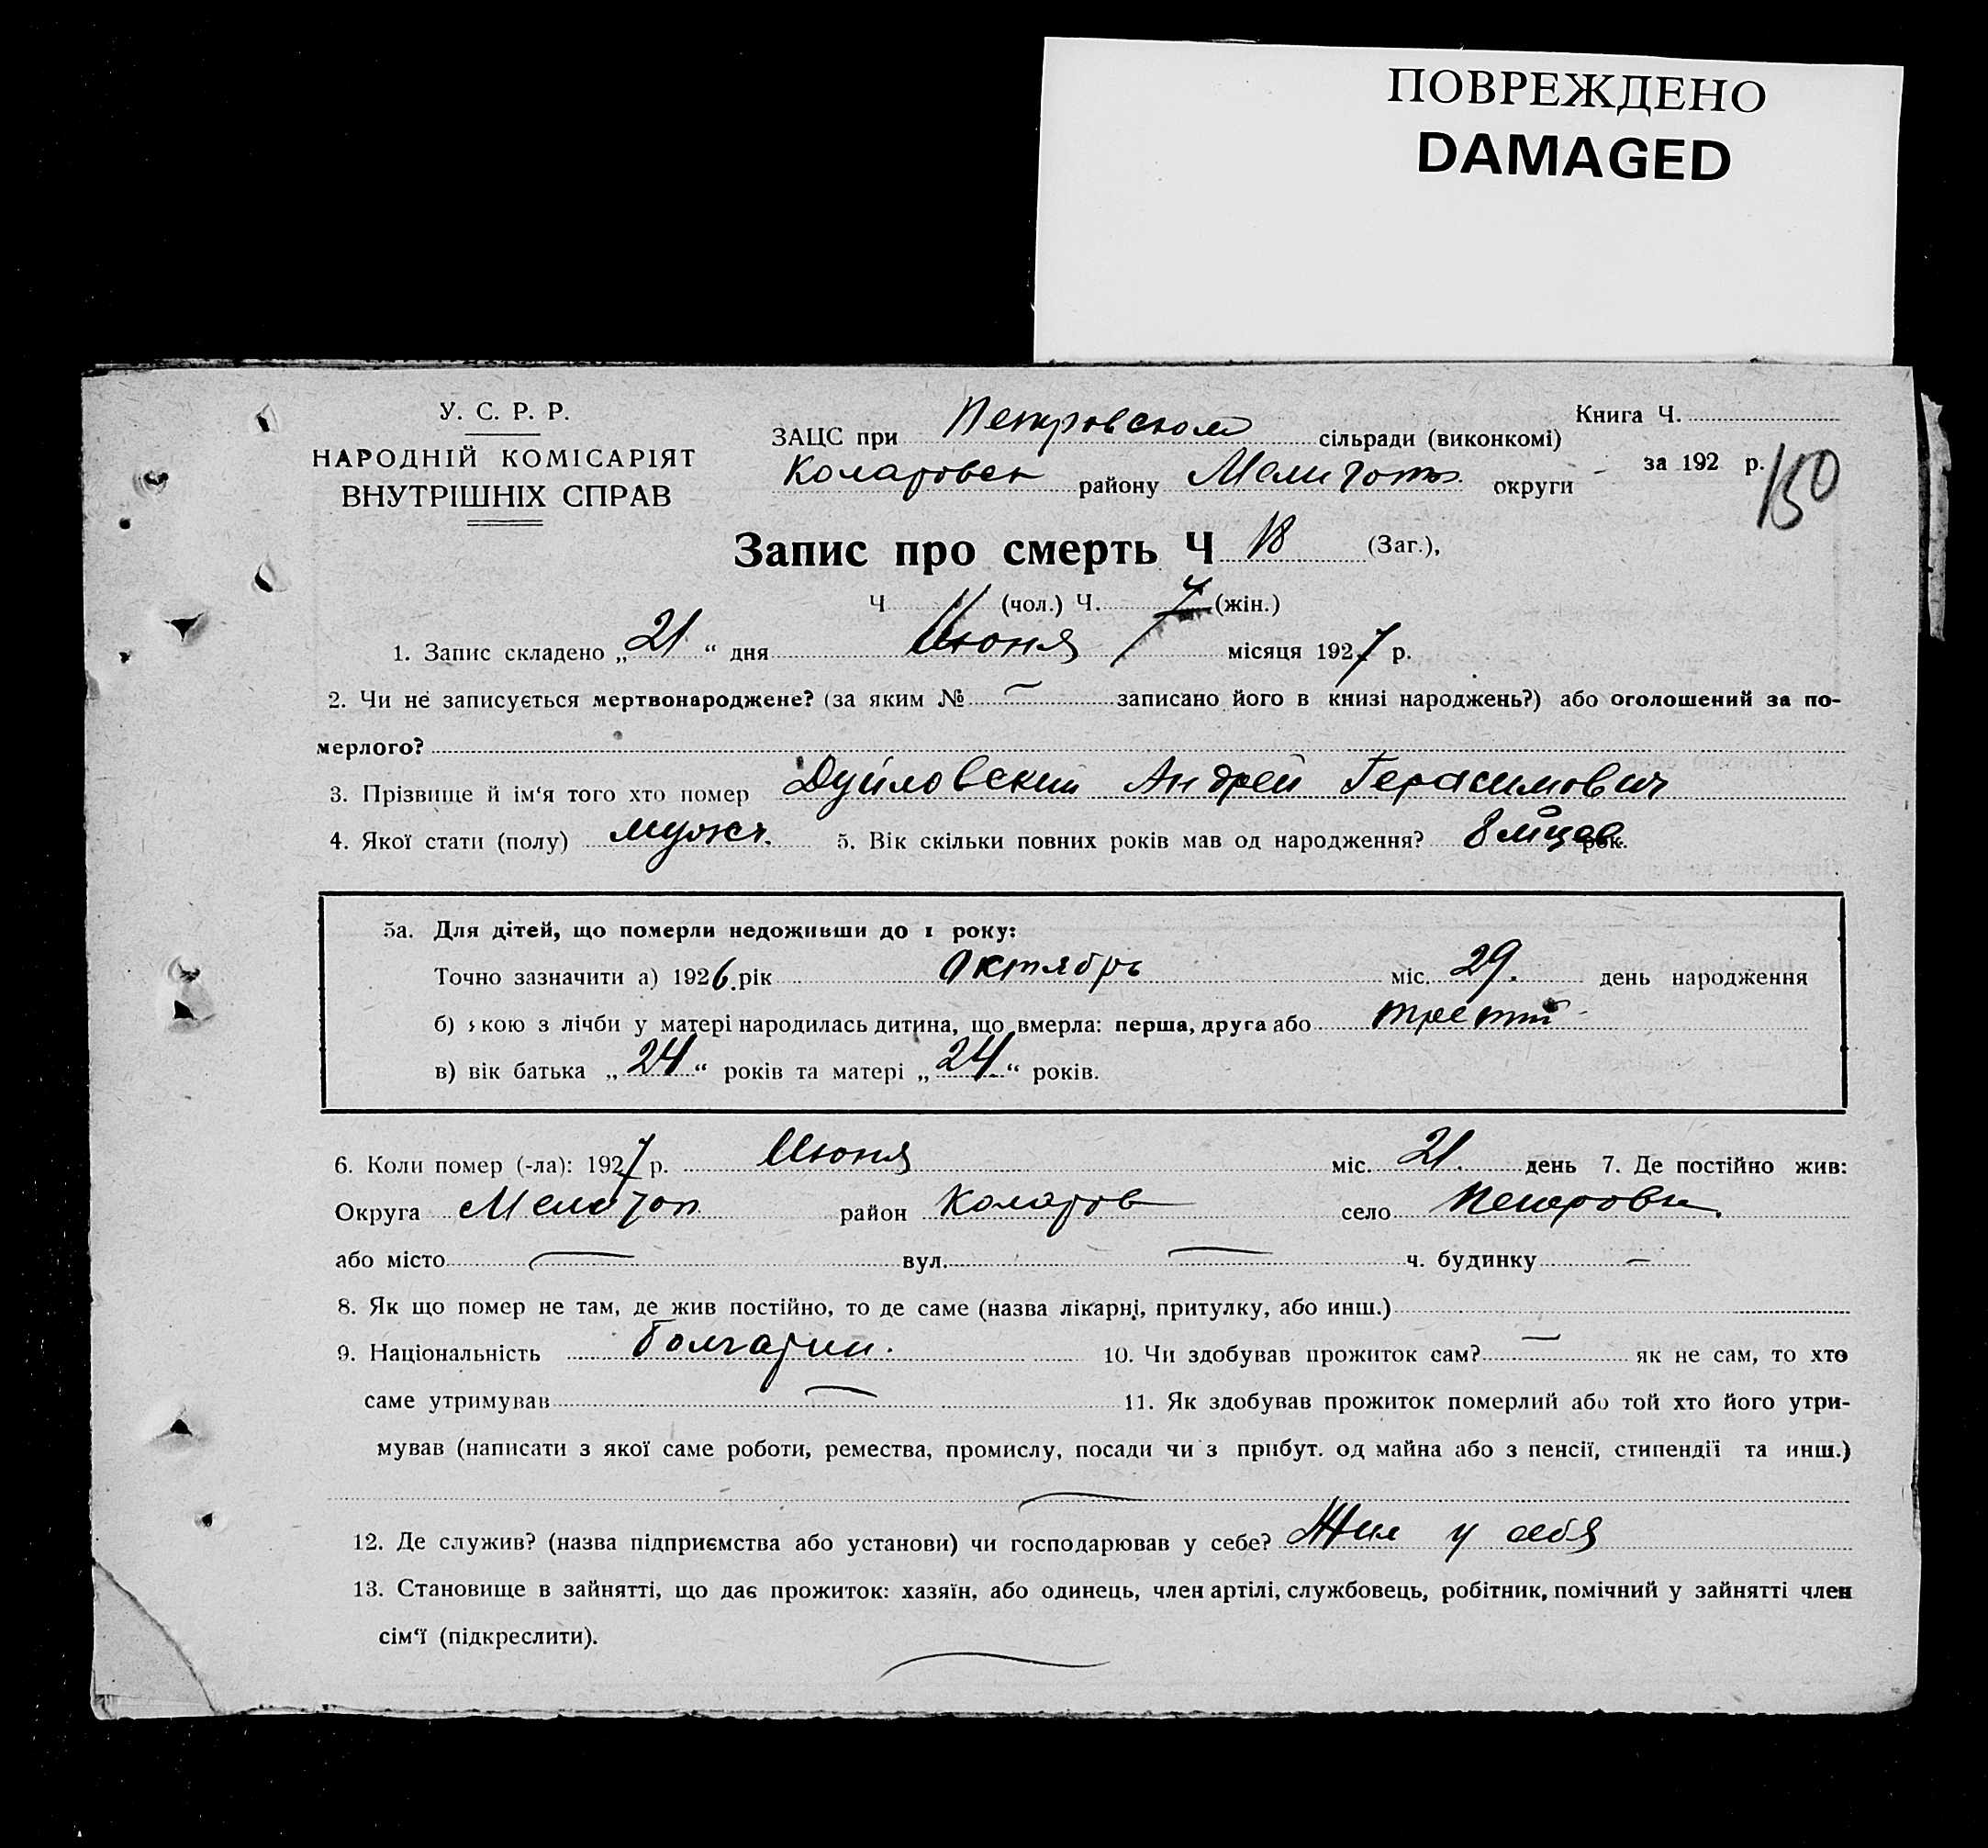 ПОВРЕЖДЕНО
DAMAGED
У. С. Р. Р.
НАРОДНІЙ КОМІСАРІЯТ
ВНУТРІШНІХ СПРАВ
Книга Ч.
ЗАЦС при Петровском сільради (виконкомі)
за 192 р.
150
Коларовск району Мелитоп. округи
Запис про смерть Ч 18 (Заг.),
Ч 11 (чол.) Ч. 7 (жін.)
1. Запис складено „21“ дня Июня місяця 1927 р.
2. Чи не записується мертвонароджене? (за яким № — записано його в книзі народжень?) або оголошений за по-
мерлого?
3. Прізвище й ім‘я того хто помер Дуйловский Андрей Герасимович
4. Якої стати (полу) мужч. 5. Вік скільки повних років мав од народження? 8 м̅цев рок.
5а. Для дітей, що померли недоживши до 1 року:
Точно зазначити а) 1926. рік Октябрь міс. 29. день народження
б) якою з лічби у матері народилась дитина, що вмерла: перша, друга або третий
в) вік батька „24“ років та матері „24“ років.
6. Коли помер (-ла): 1927 р. Июня міс. 21. день 7. Де постійно жив:
Округа Мелитоп район Коларов село Петровка.
або місто — вул. — ч. будинку —
8. Як що помер не там, де жив постійно, то де саме (назва лікарні, притулку, або инш.)
9. Національність болгарин. 10. Чи здобував прожиток сам? — як не сам, то хто
саме утримував — 11. Як здобував прожиток померлий або той хто його утри-
мував (написати з якої саме роботи, ремества, промислу, посади чи з прибут. од майна або з пенсії, стипендії та инш.)
—
12. Де служив? (назва підприємства або установи) чи господарював у себе? Жил у себя
13. Становище в зайнятті, що дає прожиток: хазяїн, або одинець, член артілі, службовець, робітник, помічний у зайнятті член
сім‘ї (підкреслити).
—